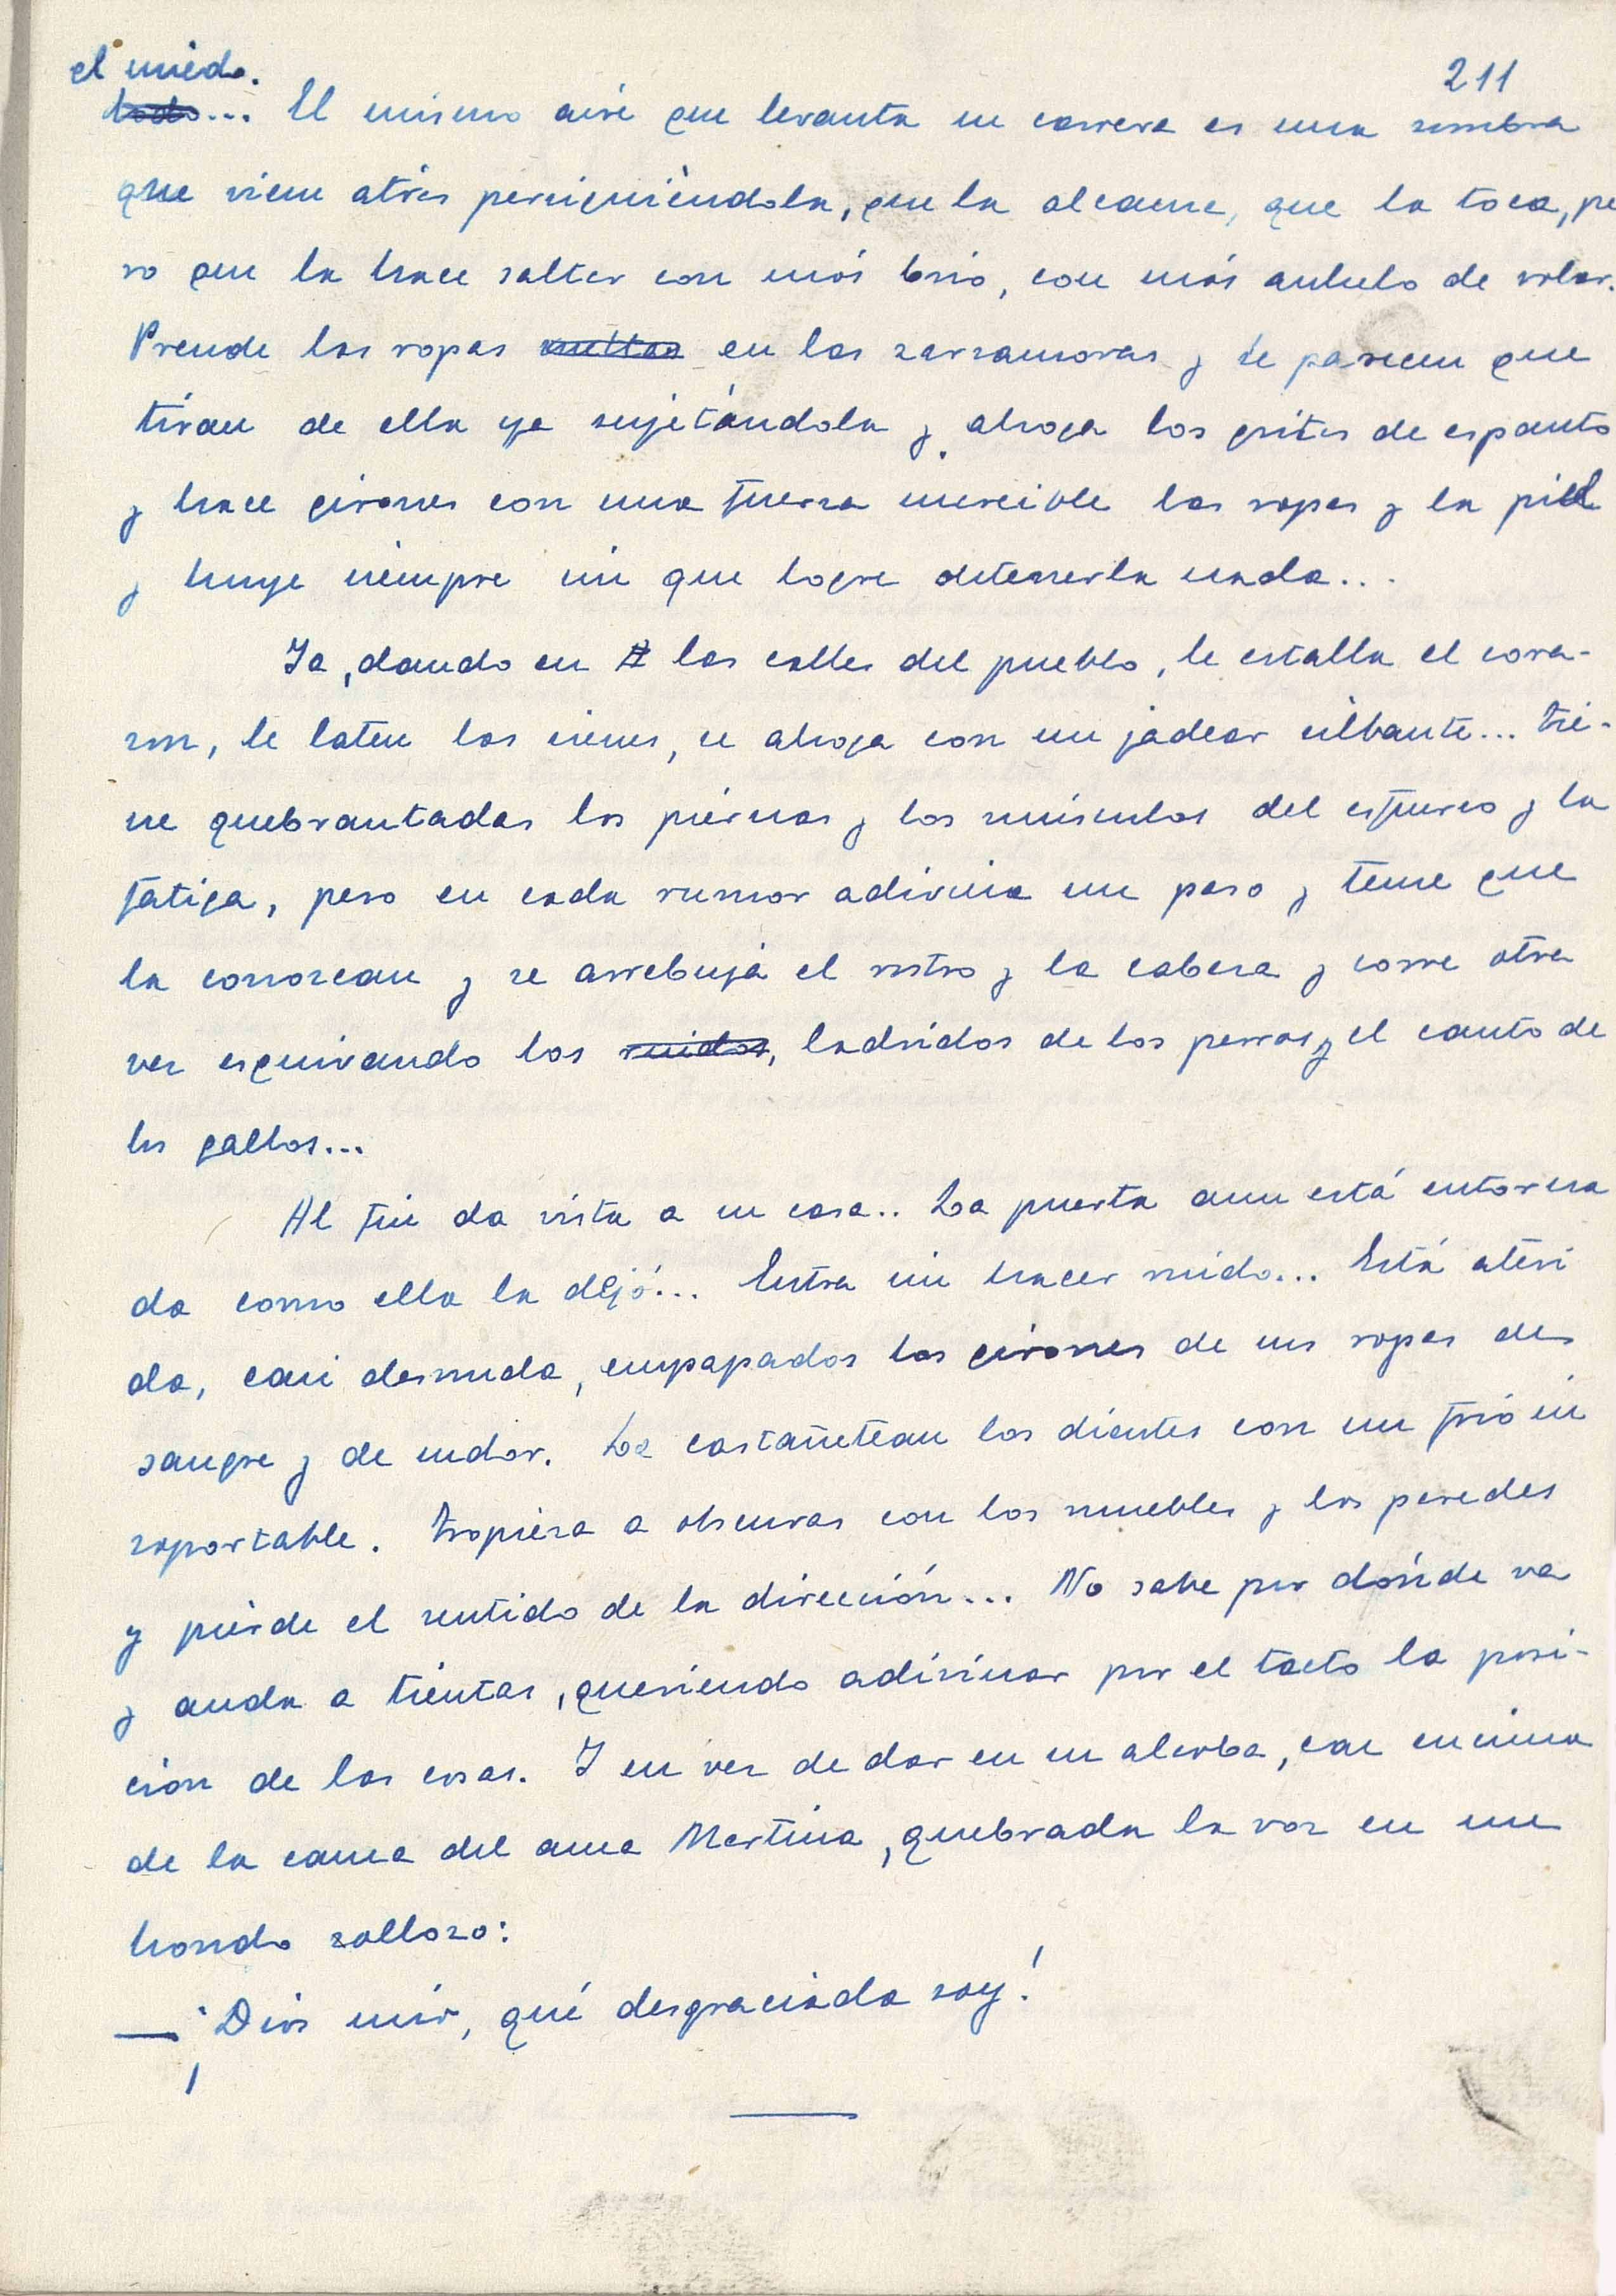 211
el miedo.
todo... El mismo aire que levanta su carrera es una sombra
que viene atrás persiguiéndola, que la alcanza, que la toca, pe
ro que la hace saltar con más brío, con más anhelo de volar.
Prende las ropas sueltas en las zarzamoras y le parecen que
tiran de ella ya sujetándola y ahoga los gritos de espanto
y hace girones con una fuerza increible las ropas y la piel
y huye siempre sin que logre detenerla nada...
Ya, dando en las calles del pueblo, le estalla el cora-
zon, le laten las sienes, se ahoga con un jadear silbante... tie-
ne quebrantadas las piernas y los músculos del esfuerzo y la
fatiga, pero en cada rumor adivina un paso y teme que
la conozcan y se arrebuja el rostro y la cabeza y corre otra
vez esquivando los ruidos, ladridos de los perros y el canto de
los gallos...
Al fin da vista a su casa.. La puerta aun está entorna
da como ella la dejó... Entra sin hacer ruido... Está ateri
da, casi desnuda, empapados los girones de sus ropas de
sangre y de sudor. Le castañetean los dientes con un frío in
soportable. Tropieza a obscuras con los muebles y las paredes
y pierde el sentido de la dirección... No sabe por dónde va
y anda a tientas, queriendo adivinar por el tacto la posi-
cion de las cosas. Y en vez de dar en su alcoba, cae encima
de la cama del ama Martina, quebrada la voz en un
hondo sollozo:
— ¡Dios mío, qué desgraciada soy!